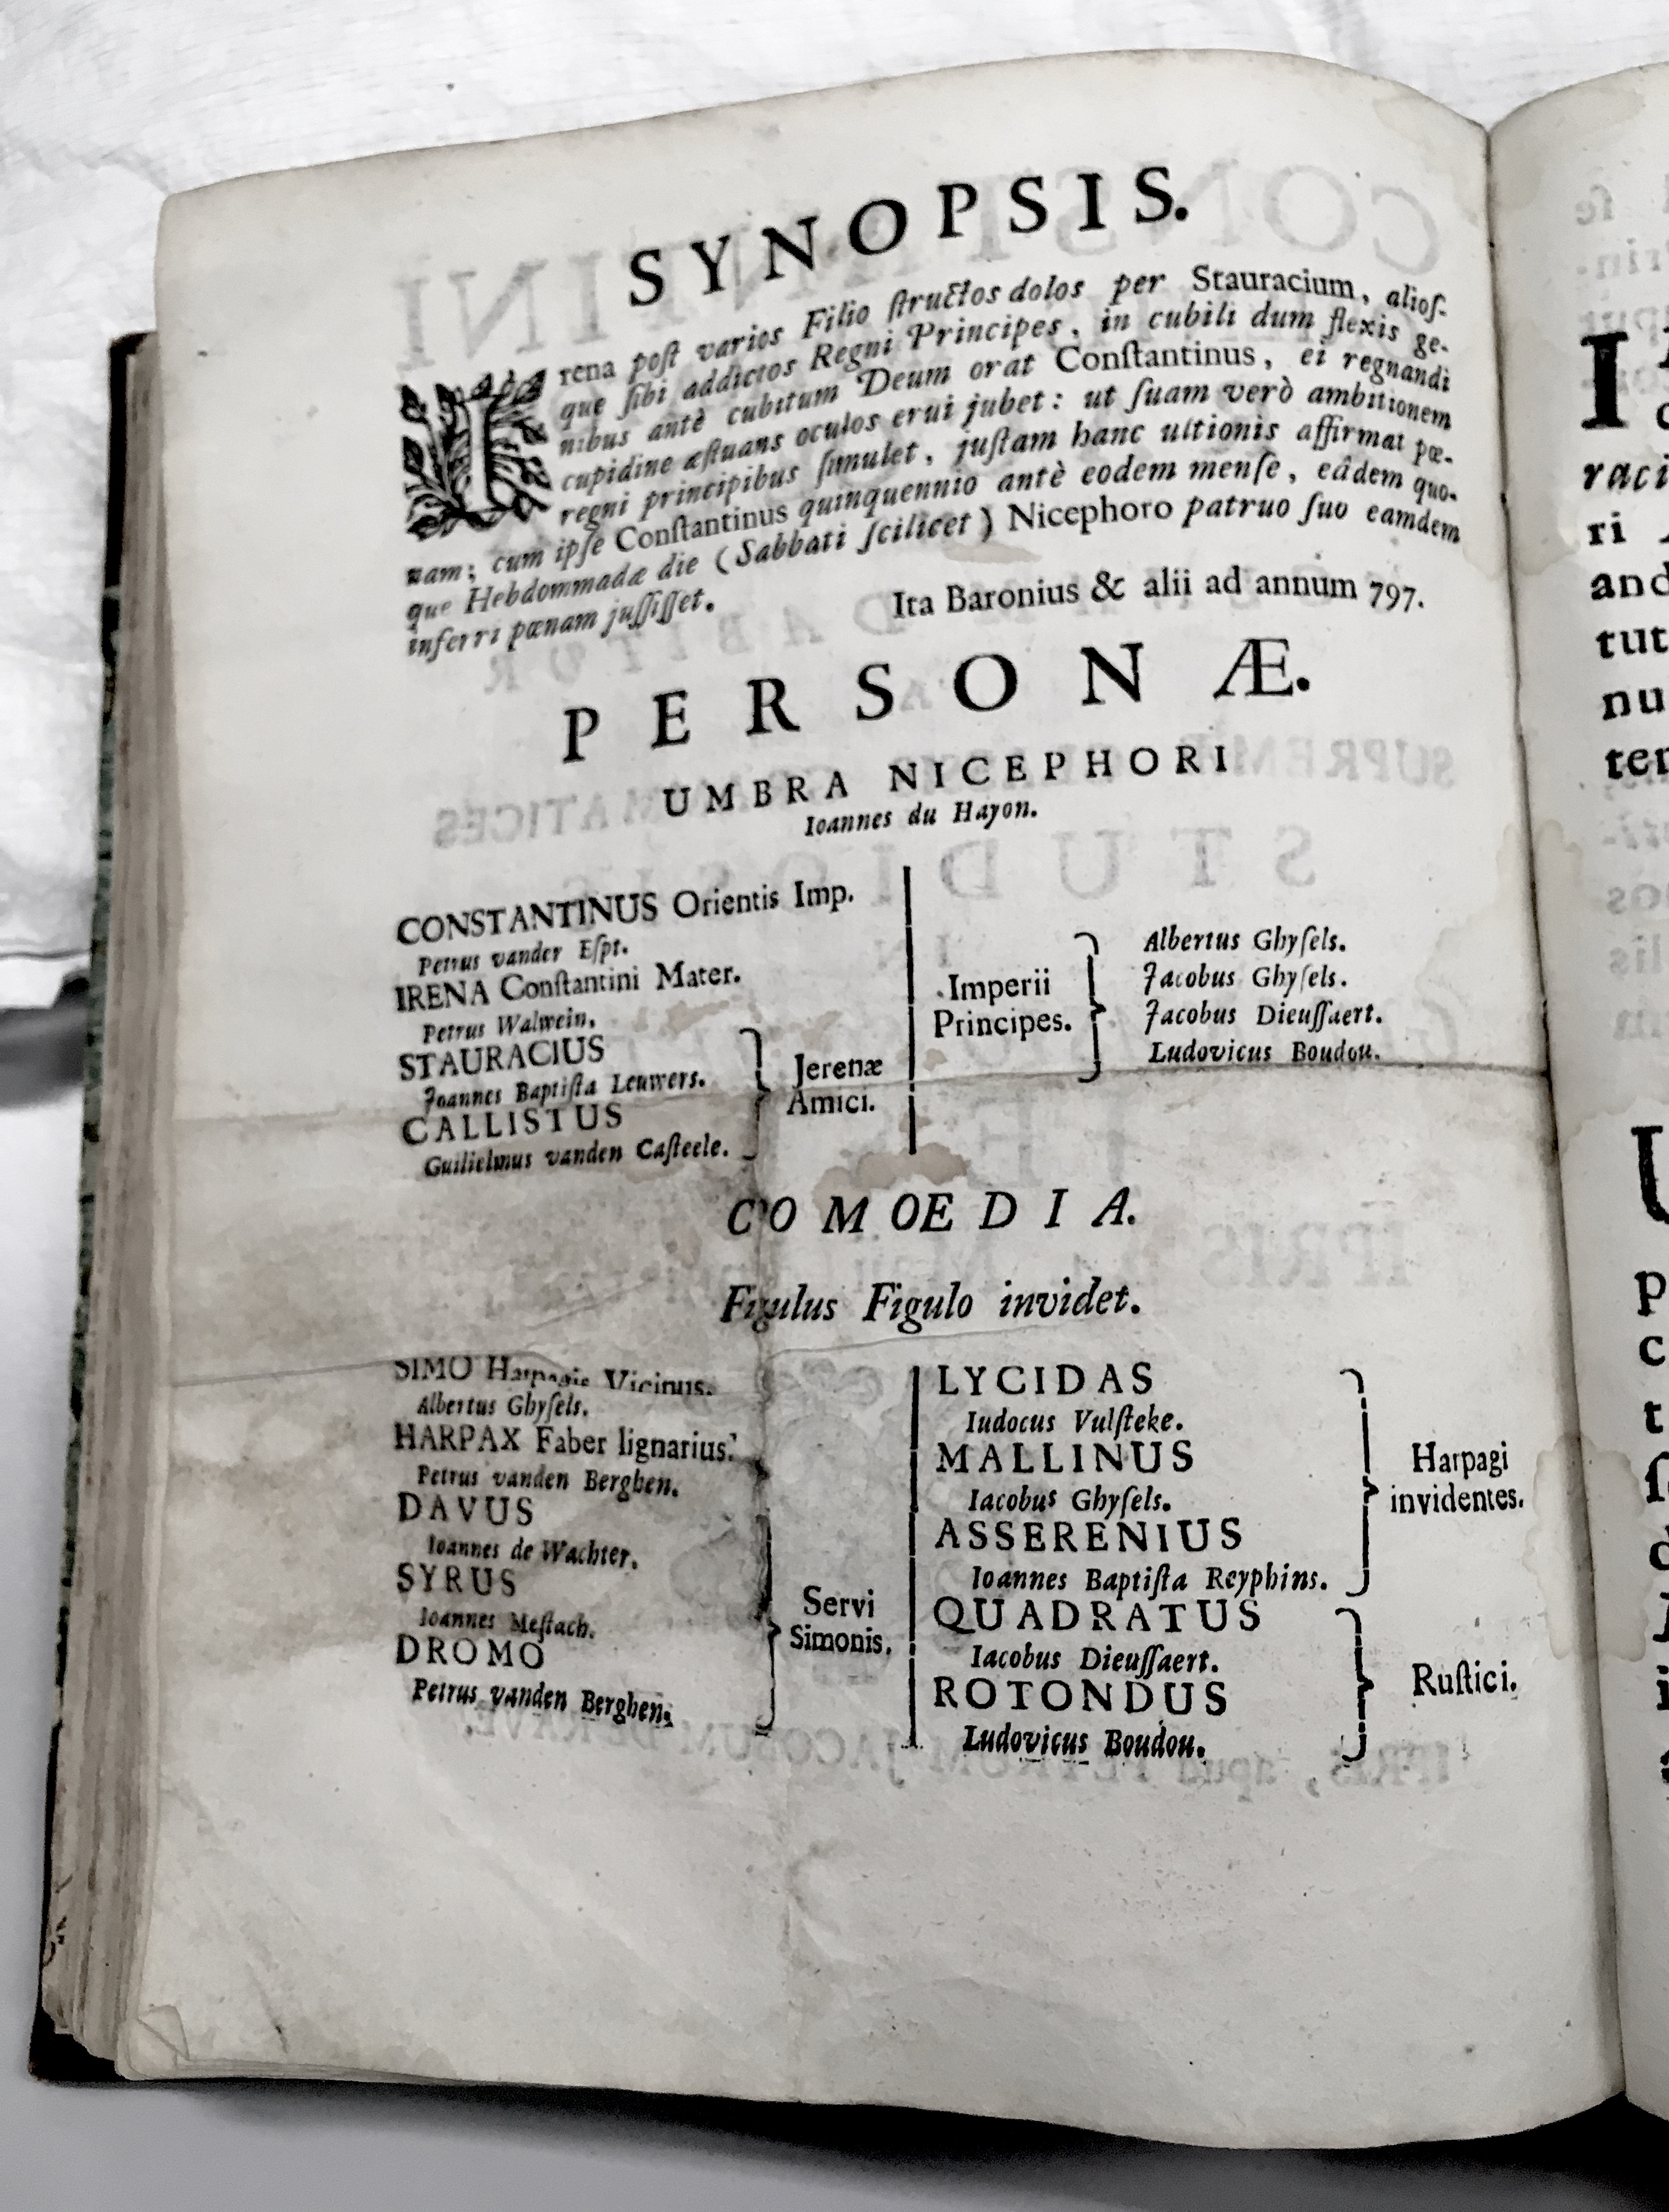 SYNOPSIS.
Irena poſt varios Filio ſtructos dolos per Stauracium, alioſ-
que ſibi addictos Regni Principes, in cubili dum flexis ge-
nibus antè cubitum Deum orat Conſtantinus, ei regnandi
cupidine æſtuans oculos erui jubet: ut ſuam verò ambitionem
regni principibus ſimulet, juſtam hanc ultionis affirmat pœ-
nam; cum ipſe Conſtantinus quinquennio antè eodem menſe, eâdem quo-
que Hebdommadæ die (Sabbati ſcilicet) Nicephoro patruo ſuo eamdem
inferri pœnam juſſiſſet.
Ita Baronius & alii ad annum 797.
PERSONÆ.
UMBRA NICEPHORI
Ioannes du Hayon.
CONSTANTINUS Orientis Imp.
Petrus vander Eſpt.
IRENA Conſtantini Mater.
Petrus Walwein.
STAURACIUS
Joannes Baptiſta Leuwers.
CALLISTUS
Guilielmus vanden Caſteele.
Jerenæ
Amici.
Imperii
Principes.
Albertus Ghyſels.
Jacobus Ghyſels.
Jacobus Dieuſſaert.
Ludovicus Boudou.
COMOEDIA.
Figulus Figulo invidet.
SIMO Harpagis Vicinus.
Albertus Ghyſels.
HARPAX Faber lignarius.
Petrus vanden Berghen.
DAVUS
Ioannes de Wachter.
SYRUS
Ioannes Meſtach.
DROMO
Petrus vanden Berghen.
Servi
Simonis.
LYCIDAS
Iudocus Vulſteke.
MALLINUS
Iacobus Ghyſels.
ASSERENIUS
Ioannes Baptiſta Reyphins.
Harpagi
invidentes.
QUADRATUS
Iacobus Dieuſſaert.
ROTONDUS
Ludovicus Boudou.
Ruſtici.